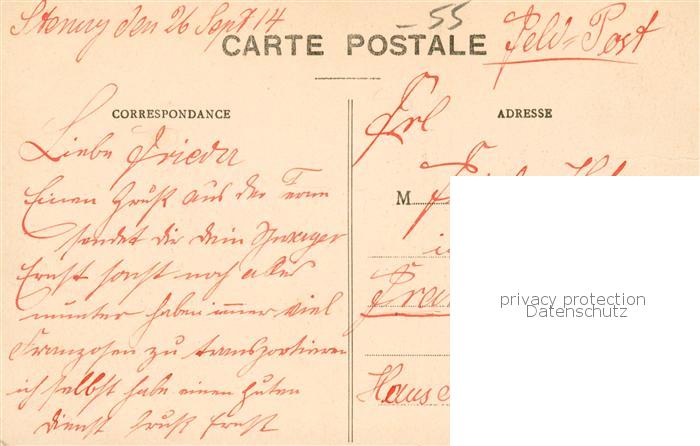 Stenay den 26 Sept 14
- 55
CARTE POSTALE
Feld-Post
CORRESPONDANCE
ADRESSE
Liebe Frieda
Frl
Einen Gruß aus der Ferne
M
sendet dir dein
Ernst sonst noch alles
munter haben immer viel
Franzosen zu transportieren
ich selbst habe einen guten
Haus
Dienst Gruß Ernst
privacy protection
Datenschutz